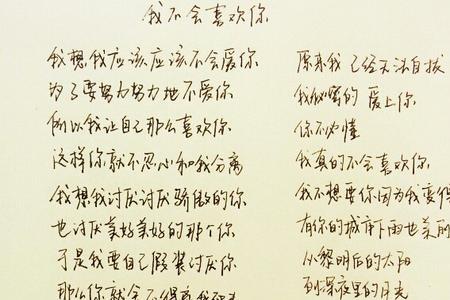 我不会喜欢你
我想我应该应该不会爱你
为了要努力努力地不爱你
所以我让自己那么喜欢你
这样你就不忍心和我分离
我想我讨厌讨厌骄傲的你
也讨厌美好美好的那个你
于是我要自己假装讨厌你
那么你就会不得
原来我已经无法自拔
我秘密的爱上你
你不必懂
我真的不会喜欢你
我不想要你因为我变得
有你的城市下雨也美丽
从黎明后的太阳
到深夜里的月光